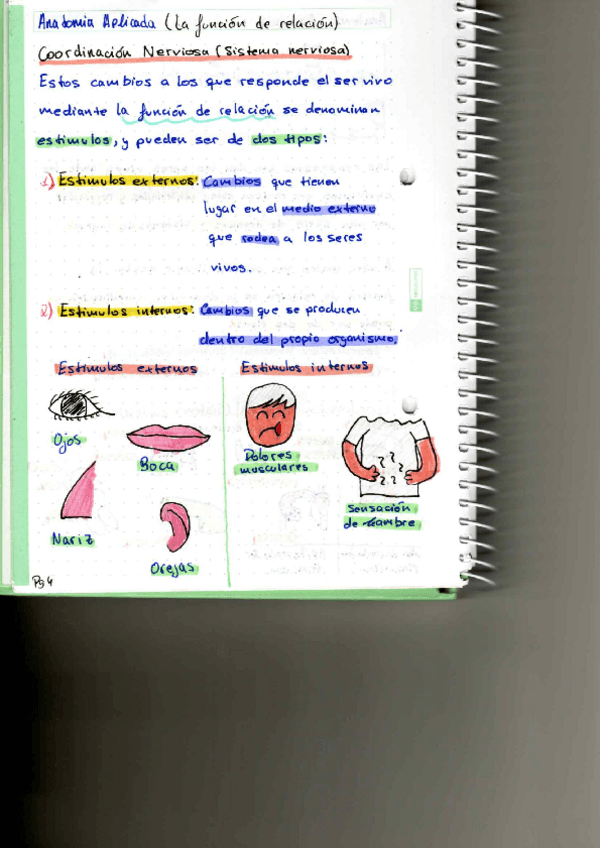 Anatomia Aplicada (La función de relación)
Coordinación Nerviosa (Sistema nerviosa)
Estos cambios a los que responde el ser vivo
mediante la función de relación se denominan
estimulos, y pueden ser de dos tipos:
1) Estimulos externos: Cambios que tienen
lugar en el medio externo
que rodea a los seres
vivos.
2) Estimulos internos: Cambios que se producen
dentro del propio organismo.
Estimulos externos
Estimulos internos
Ojos
Boca
Nariz
Orejas
Dolores
musculares
? ? ? ?
Sensación
de hambre
Pg 4